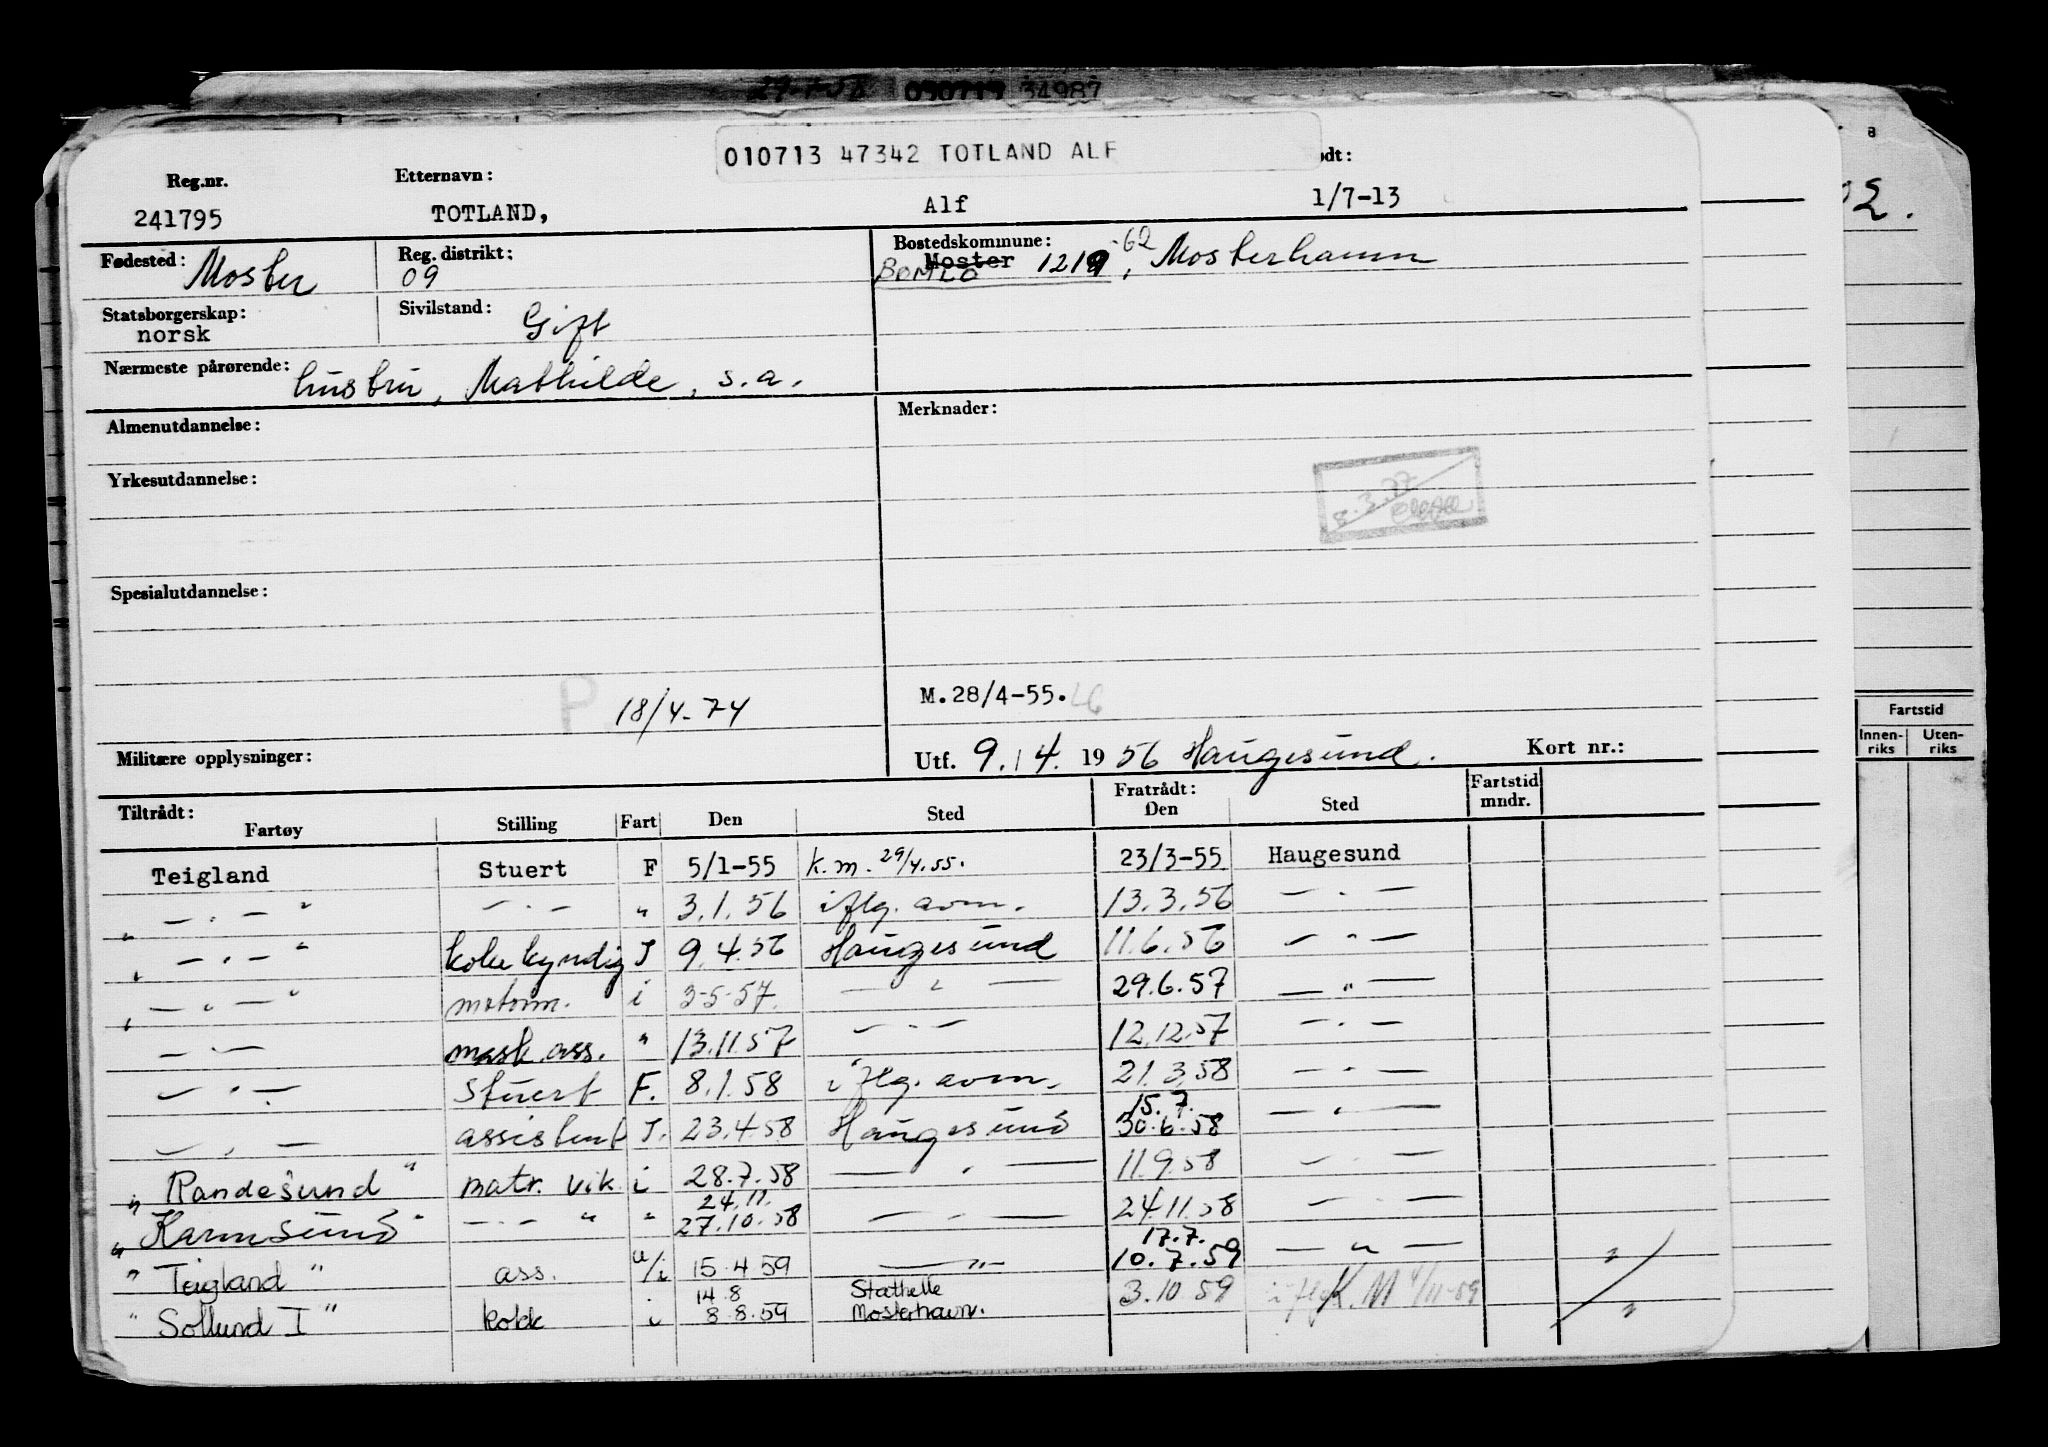 010713 34987
010713 47342 TOTLAND ALF
Reg.nr. Etternavn: ødt:
241795 TOTLAND, Alf 1/7-13
Fødested: Moster Reg. distrikt: 09 Bostedskommune: Moster 1219 -62, Mosterhamn
BØMLO
Statsborgerskap: norsk Sivilstand: Gift
Nærmeste pårørende: hustru, Mathilde, s.a.
Almenutdannelse: Merknader:
Yrkesutdannelse:
Spesialutdannelse:
P 18/4-74 M.28/4-55.
Militære opplysninger: Utf. 9./4. 1956 Haugesund. Kort nr.:
Tiltrådt: Fratrådt: Fartstid
Fartøy Stilling Fart Den Sted Den Sted mndr.
Teigland Stuert F 5/1-55 k.m. 29/4.55. 23/3-55 Haugesund
" — . — " — . — " 3.1.56 iflg. avm. 13.3.56 — . —
" — . — " kokekyndig I 9.4.56 Haugesund 11.6.56 — " —
" — " — " motorm. i 3-5-57. — " — 29.6.57 — " —
— . — mask.ass. " 13.11.57 — . — 12.12.57 — . —
— . — Stuert F. 8.1.58 iflg. avm. 21.3.58 — . —
15.7.
— . — assistent I. 23.4.58 Haugesund 30.6.58 — . —
" Randesund " matr. vik. i 28.7.58 — . — 11.9.58 — . —
24.11.
" Karmsund " — . — " " 27.10.58 — . — 24.11.58 — . —
17.7.
" Teigland " ass. u/i 15.4.59 — " — 10.7.59 — " — "
14.8 Stathelle
" Sollund I " kokk i 8.8.59 Mosterhavn. 3.10.59 iflg K.M 4/11-59 "
Fartstid
Innen-riks Uten-riks